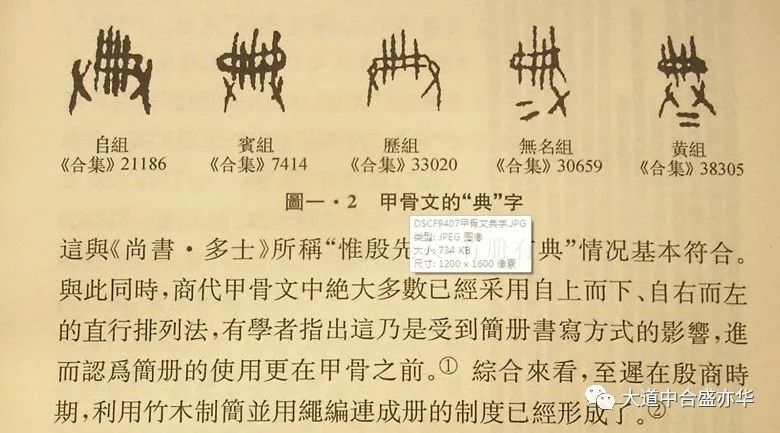 自組 賓組 歷組 無名組 黄組
《合集》21186 《合集》7414 《合集》33020 《合集》30659 《合集》38305
圖一·2 甲骨文的“典”字
DSCF9407甲骨文典字.JPG
类型: JPEG 图像
大小: 734 KB
尺寸: 1200 x 1600 像素
這與《尚書·多士》所稱“惟殷先 典”情况基本符合。
與此同時，商代甲骨文中絶大多數已經采用自上而下、自右而左
的直行排列法，有學者指出這乃是受到簡册書寫方式的影響，進
而認爲簡册的使用更在甲骨之前。① 綜合來看，至遲在殷商時
期，利用竹木制簡並用繩編連成册的制度已經形成了。②
大道中合盛亦华